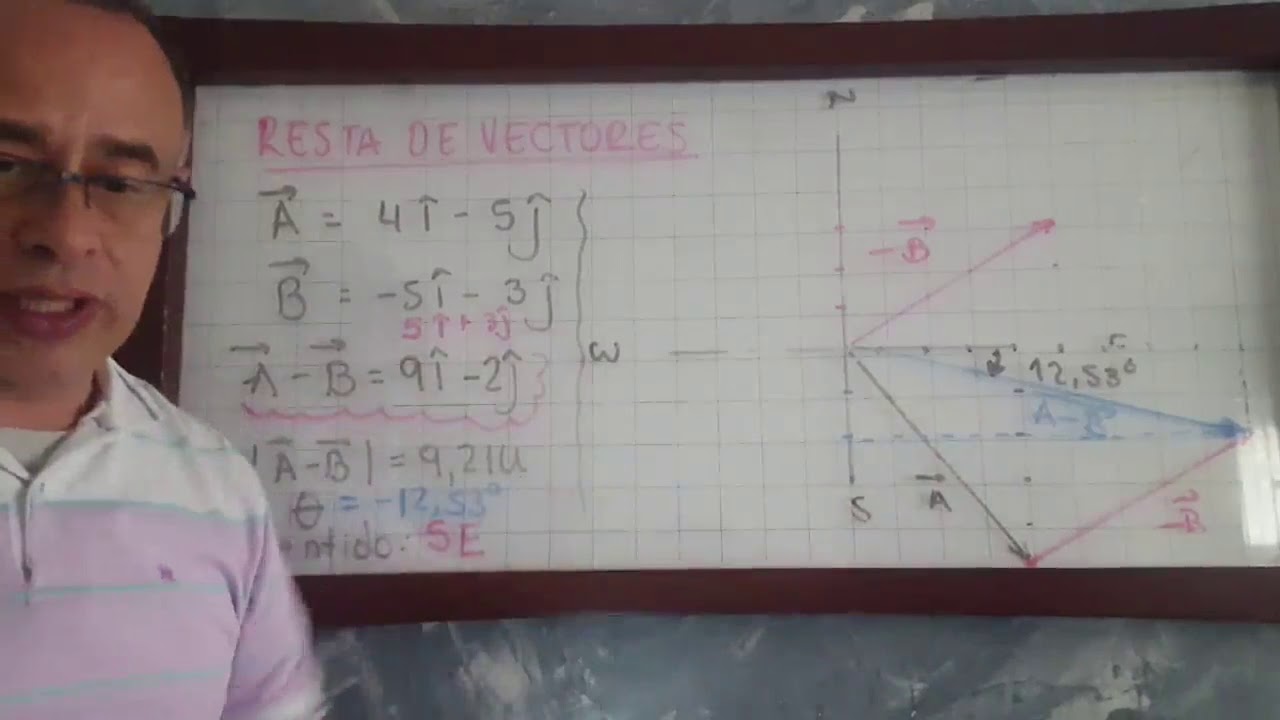 RESTA DE VECTORES
A⃗ = 4î - 5ĵ
B⃗ = -5î - 3ĵ
5î + 3ĵ
A⃗ - B⃗ = 9î - 2ĵ
|A⃗-B⃗| = 9,21u
θ = -12,53°
ntido: SE
N
-B⃗
W
12,53°
A-B
A⃗
S
-B⃗